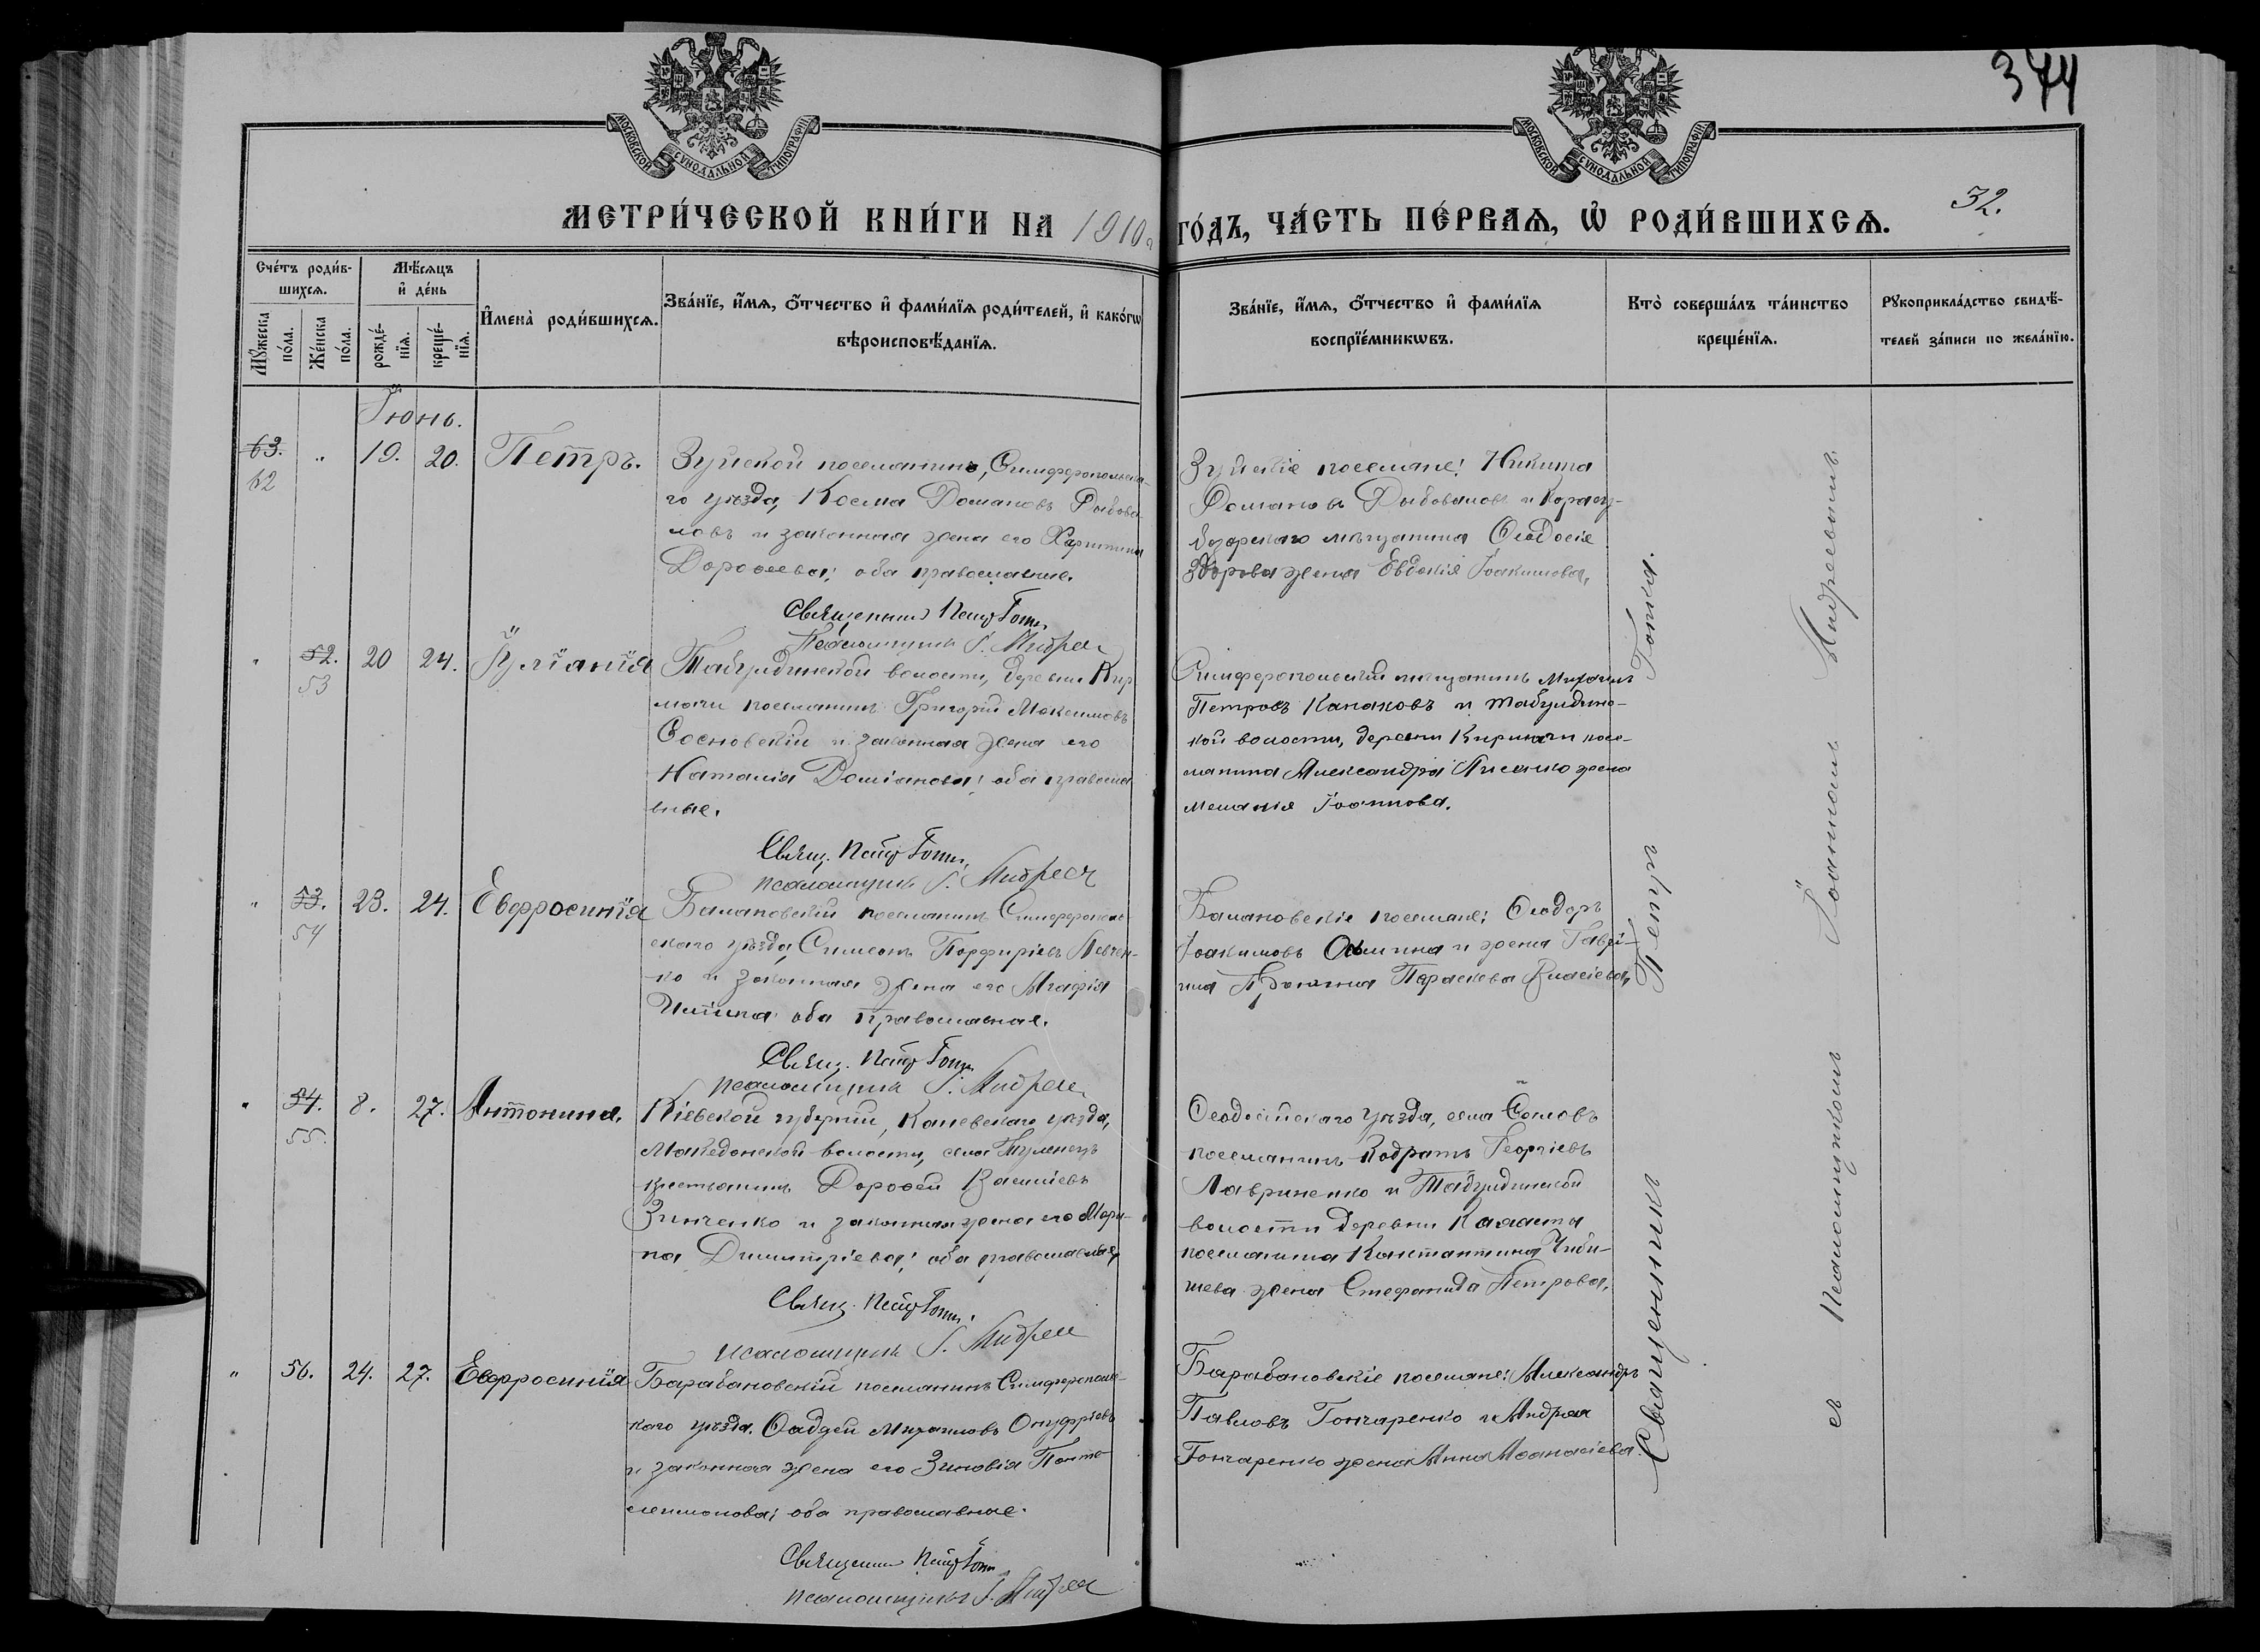 344
МОСКОВСКОЙ СѴНОДАЛЬНОЙ ТИПОГРАФІИ
МОСКОВСКОЙ СѴНОДАЛЬНОЙ ТИПОГРАФІИ
МЕТРИ́ЧЕСКОЙ КНИ́ГИ НА 1910 г. ГО́ДЪ, ЧА́СТЬ ПЕ́РВАѦ, Ѡ҆ РОДИ́ВШИХСѦ.
32.
Сче́тъ роди́в-
шихсѧ.
Мѣ́сѧцъ
и҆ де́нь
Мꙋ́жеска
по́ла.
Же́нска
по́ла.
рожде́-
нїѧ.
креще́-
нїѧ.
И҆мена̀ роди́вшихсѧ.
Зва́нїе, и҆́мѧ, ѻ҆́тчество и҆ фами́лїѧ роди́телей, и҆ како́гѡ
вѣроисповѣ́данїѧ.
Зва́нїе, и҆́мѧ, ѻ҆́тчество и҆ фами́лїѧ
воспрїе́мникѡвъ.
Кто̀ соверша́лъ та́инство
креще́нїѧ.
Рꙋкоприкла́дство свидѣ́-
телей за́писи по жела́нїю.
Іюнь.
63. " 19. 20. Петръ.
62
Зуйской поселянинъ, Симферопольска-
го уѣзда, Косма Романовъ Рыбова-
ловъ и законная жена его Харитина
Дорофеева; оба православные.
Священникъ Петръ Гопка
Псаломщикъ І. Андреев
Зуйскіе поселяне: Никита
Романовъ Рыбоваловъ и Карасу-
базарскаго мѣщанина Ѳеодосія
жена Евдокія Іоакимова.
" 52. 20 24. Іуліанія
53
Табулдинской волости, деревни Кир
поселянинъ Григорій Максимовъ
Сосновскій и законная жена его
Наталія Даміанова; оба правосла
вные.
Свящ. Петръ Гопка
псаломщикъ І. Андреев
Симферопольскій мѣщанинъ Михаилъ
Петровъ Канаковъ и Табулдинс-
кой волости, деревни посе-
лянина Александра жена
Меланія Іоаннова.
" 53. 23. 24. Евфросинія
54
Балановскій поселянинъ Симферополь
скаго уѣзда, Симеонъ Порфиріевъ Левчен-
ко и законная жена его Агафія
оба православные.
Свящ. Петръ Гопка
псаломщикъ І. Андреев
Балановскіе поселяне: Ѳеодоръ
Іоакимовъ и жена Гаврі-
ила Параскева Власіева.
" 54. 8. 27. Антонина.
55.
Кіевской губерніи, Каневскаго уѣзда,
Македонской волости, села Тулинецъ
крестьянинъ Дорофей Василіевъ
Зинченко и законная жена его Мари-
на Димитріева; оба православные
Свящ. Петръ Гопка
псаломщикъ І. Андреев
Ѳеодосійскаго уѣзда, села
поселянинъ Кодратъ Георгіевъ
Лавриненко и Табулдинской
волости деревни
поселянина Константина Чиби-
шева жена Стефанида Петрова.
" 56. 24. 27. Евфросинія
Барабановскій поселянинъ Симферополь-
каго уѣзда, Ѳаддей Михаиловъ Онуфріевъ
и законная жена его Зиновія Панте-
леимонова; оба православные.
Священникъ Петръ Гопка
псаломщикъ І. Андреев
Барабановскіе поселяне: Александръ
Павловъ Гончаренко и Андрея
Гончаренко жена Анна Аѳанасіева.
Священникъ Петръ Гопка.
съ Псаломщикомъ Іоанномъ Андреевымъ